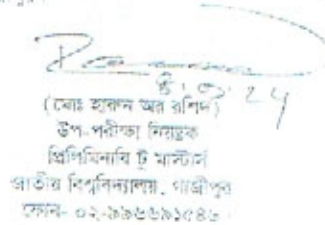 (মোঃ হারুন অর রশিদ)
উপ-পরীক্ষা নিয়ন্ত্রক
প্রিলিমিনারি টু মাস্টার্স
জাতীয় বিশ্ববিদ্যালয়, গাজীপুর
ফোন- ০২-৯৯৬৬৯১৫৪৬